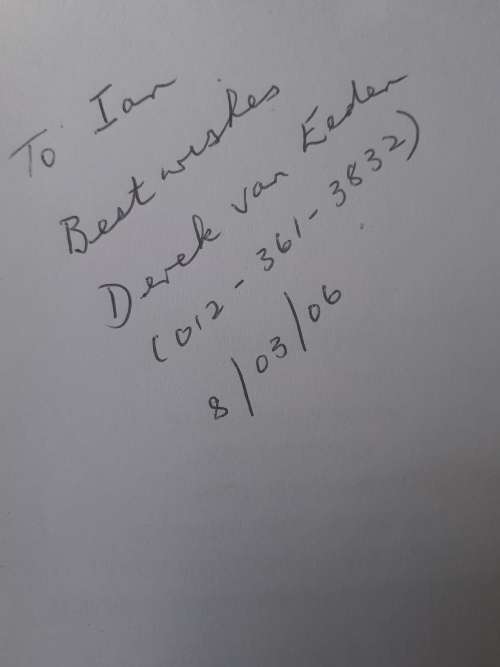 To Ian
Best wishes
Derek van Eeden
(012-361-3832)
8/03/06